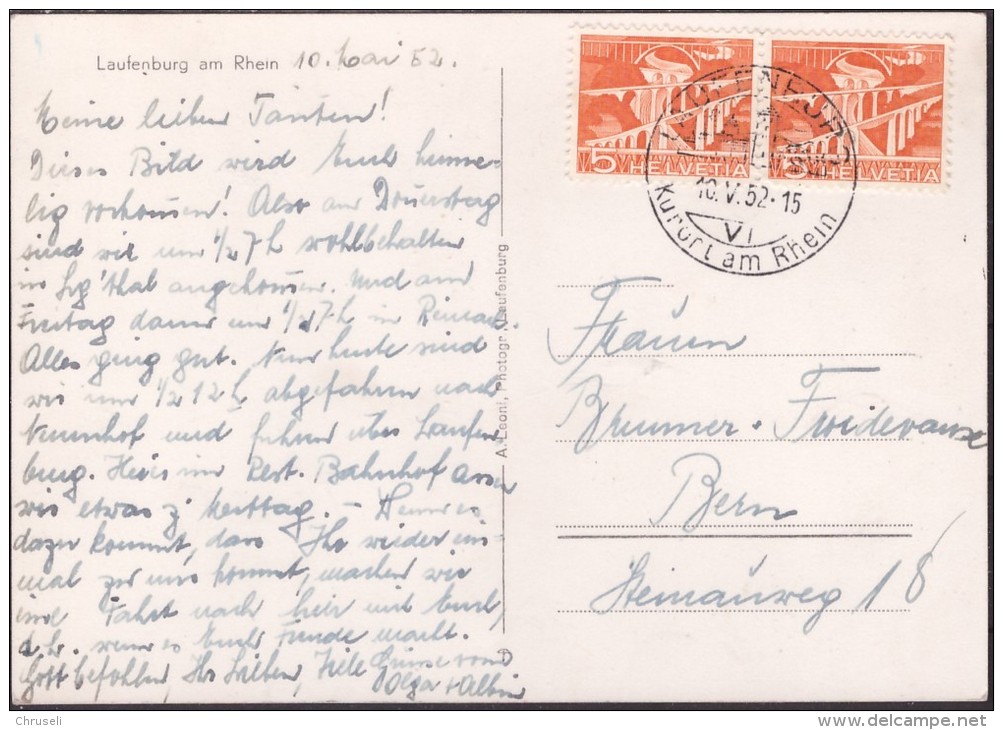 Laufenburg am Rhein 10. Mai 52.
Meine lieben Tanten!
Dieses Bild wird Euch heimel-
ig vorkommen! Also am Donnerstag
sind wir um 1/2 7 h wohlbehalten
in Lg'thal angekommen. Und am
Freitag dann um 1/2 7 h in Reinach.
Alles ging gut. Nun heute sind
wir um 1/2 12 h abgefahren nach
und fuhren über Laufen
burg. Hier im Rest. Bahnhof assen
wir etwas z' Mittag. – Wenn es
dazu kommt, dass Ihr wieder ein-
mal zu uns kommt, machen wir
eine Fahrt nach hier mit Euch
d.h. wenn es Euch Freude macht.
Gott befohlen, Ihr Lieben, Viele Grüsse von
Olga + Albin
A. Leoni, Photogr., Laufenburg
5 HELVETIA
5 HELVETIA
LAUFENBURG
10.V.52-15
VI
Kurort am Rhein
Frauen
Brunner - Froidevaux
Bern
Steinauweg 18
Chruseli
www.delcampe.net